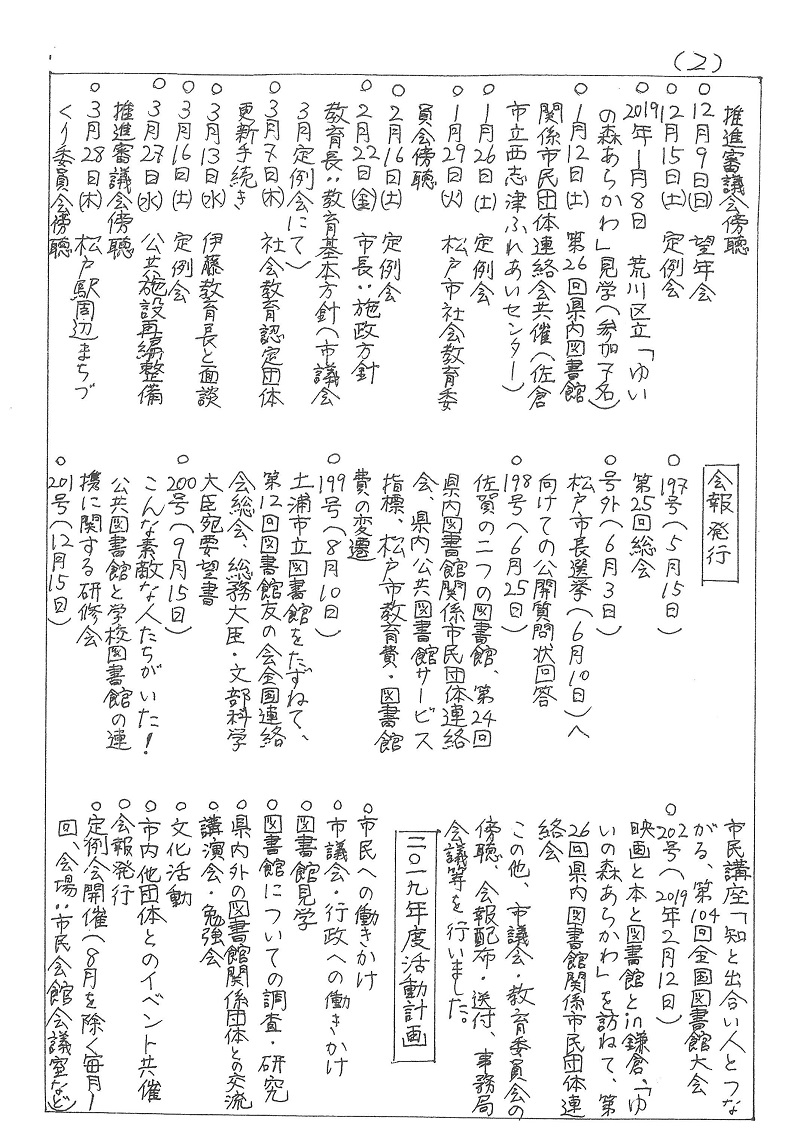 (2)
推進審議会傍聴
○12月9日(日) 望年会
○12月15日(土) 定例会
○2019年1月8日 荒川区立「ゆい
の森あらかわ」見学(参加7名)
○1月12日(土) 第26回県内図書館
関係市民団体連絡会共催(佐倉
市立西志津ふれあいセンター)
○1月26日(土) 定例会
○1月29日(火) 松戸市社会教育委
員会傍聴
○2月16日(土) 定例会
○2月22日(金) 市長:施政方針
教育長:教育基本方針(市議会
3月定例会にて)
○3月7日(木) 社会教育認定団体
更新手続き
○3月13日(水) 伊藤教育長と面談
○3月16日(土) 定例会
○3月27日(水) 公共施設再編整備
推進審議会傍聴
○3月28日(木) 松戸駅周辺まちづ
くり委員会傍聴
会報発行
○197号(5月15日)
第25回総会
○号外(6月3日)
松戸市長選挙(6月10日)へ
向けての公開質問状回答
○198号(6月25日)
佐賀の二つの図書館、第24回
県内図書館関係市民団体連絡
会、県内公共図書館サービス
指標、松戸市教育費・図書館
費の変遷
○199号(8月10日)
土浦市立図書館をたずねて、
第12回図書館友の会全国連絡
会総会、総務大臣・文部科学
大臣宛要望書
○200号(9月15日)
こんな素敵な人たちがいた!
公共図書館と学校図書館の連
携に関する研修会
○201号(12月15日)
市民講座「知と出合い人とつな
がる、第104回全国図書館大会
○202号(2019年2月12日)
映画と本と図書館とin鎌倉、「ゆ
いの森あらかわ」を訪ねて、第
26回県内図書館関係市民団体連
絡会
この他、市議会・教育委員会の
傍聴、会報配布・送付、事務局
会議等を行いました。
二〇一九年度活動計画
○市民への働きかけ
○市議会・行政への働きかけ
○図書館見学
○図書館についての調査・研究
○県内外の図書館関係団体との交流
○講演会・勉強会
○文化活動
○市内他団体とのイベント共催
○会報発行
○定例会開催(8月を除く毎月1
回、会場:市民会館会議室など)